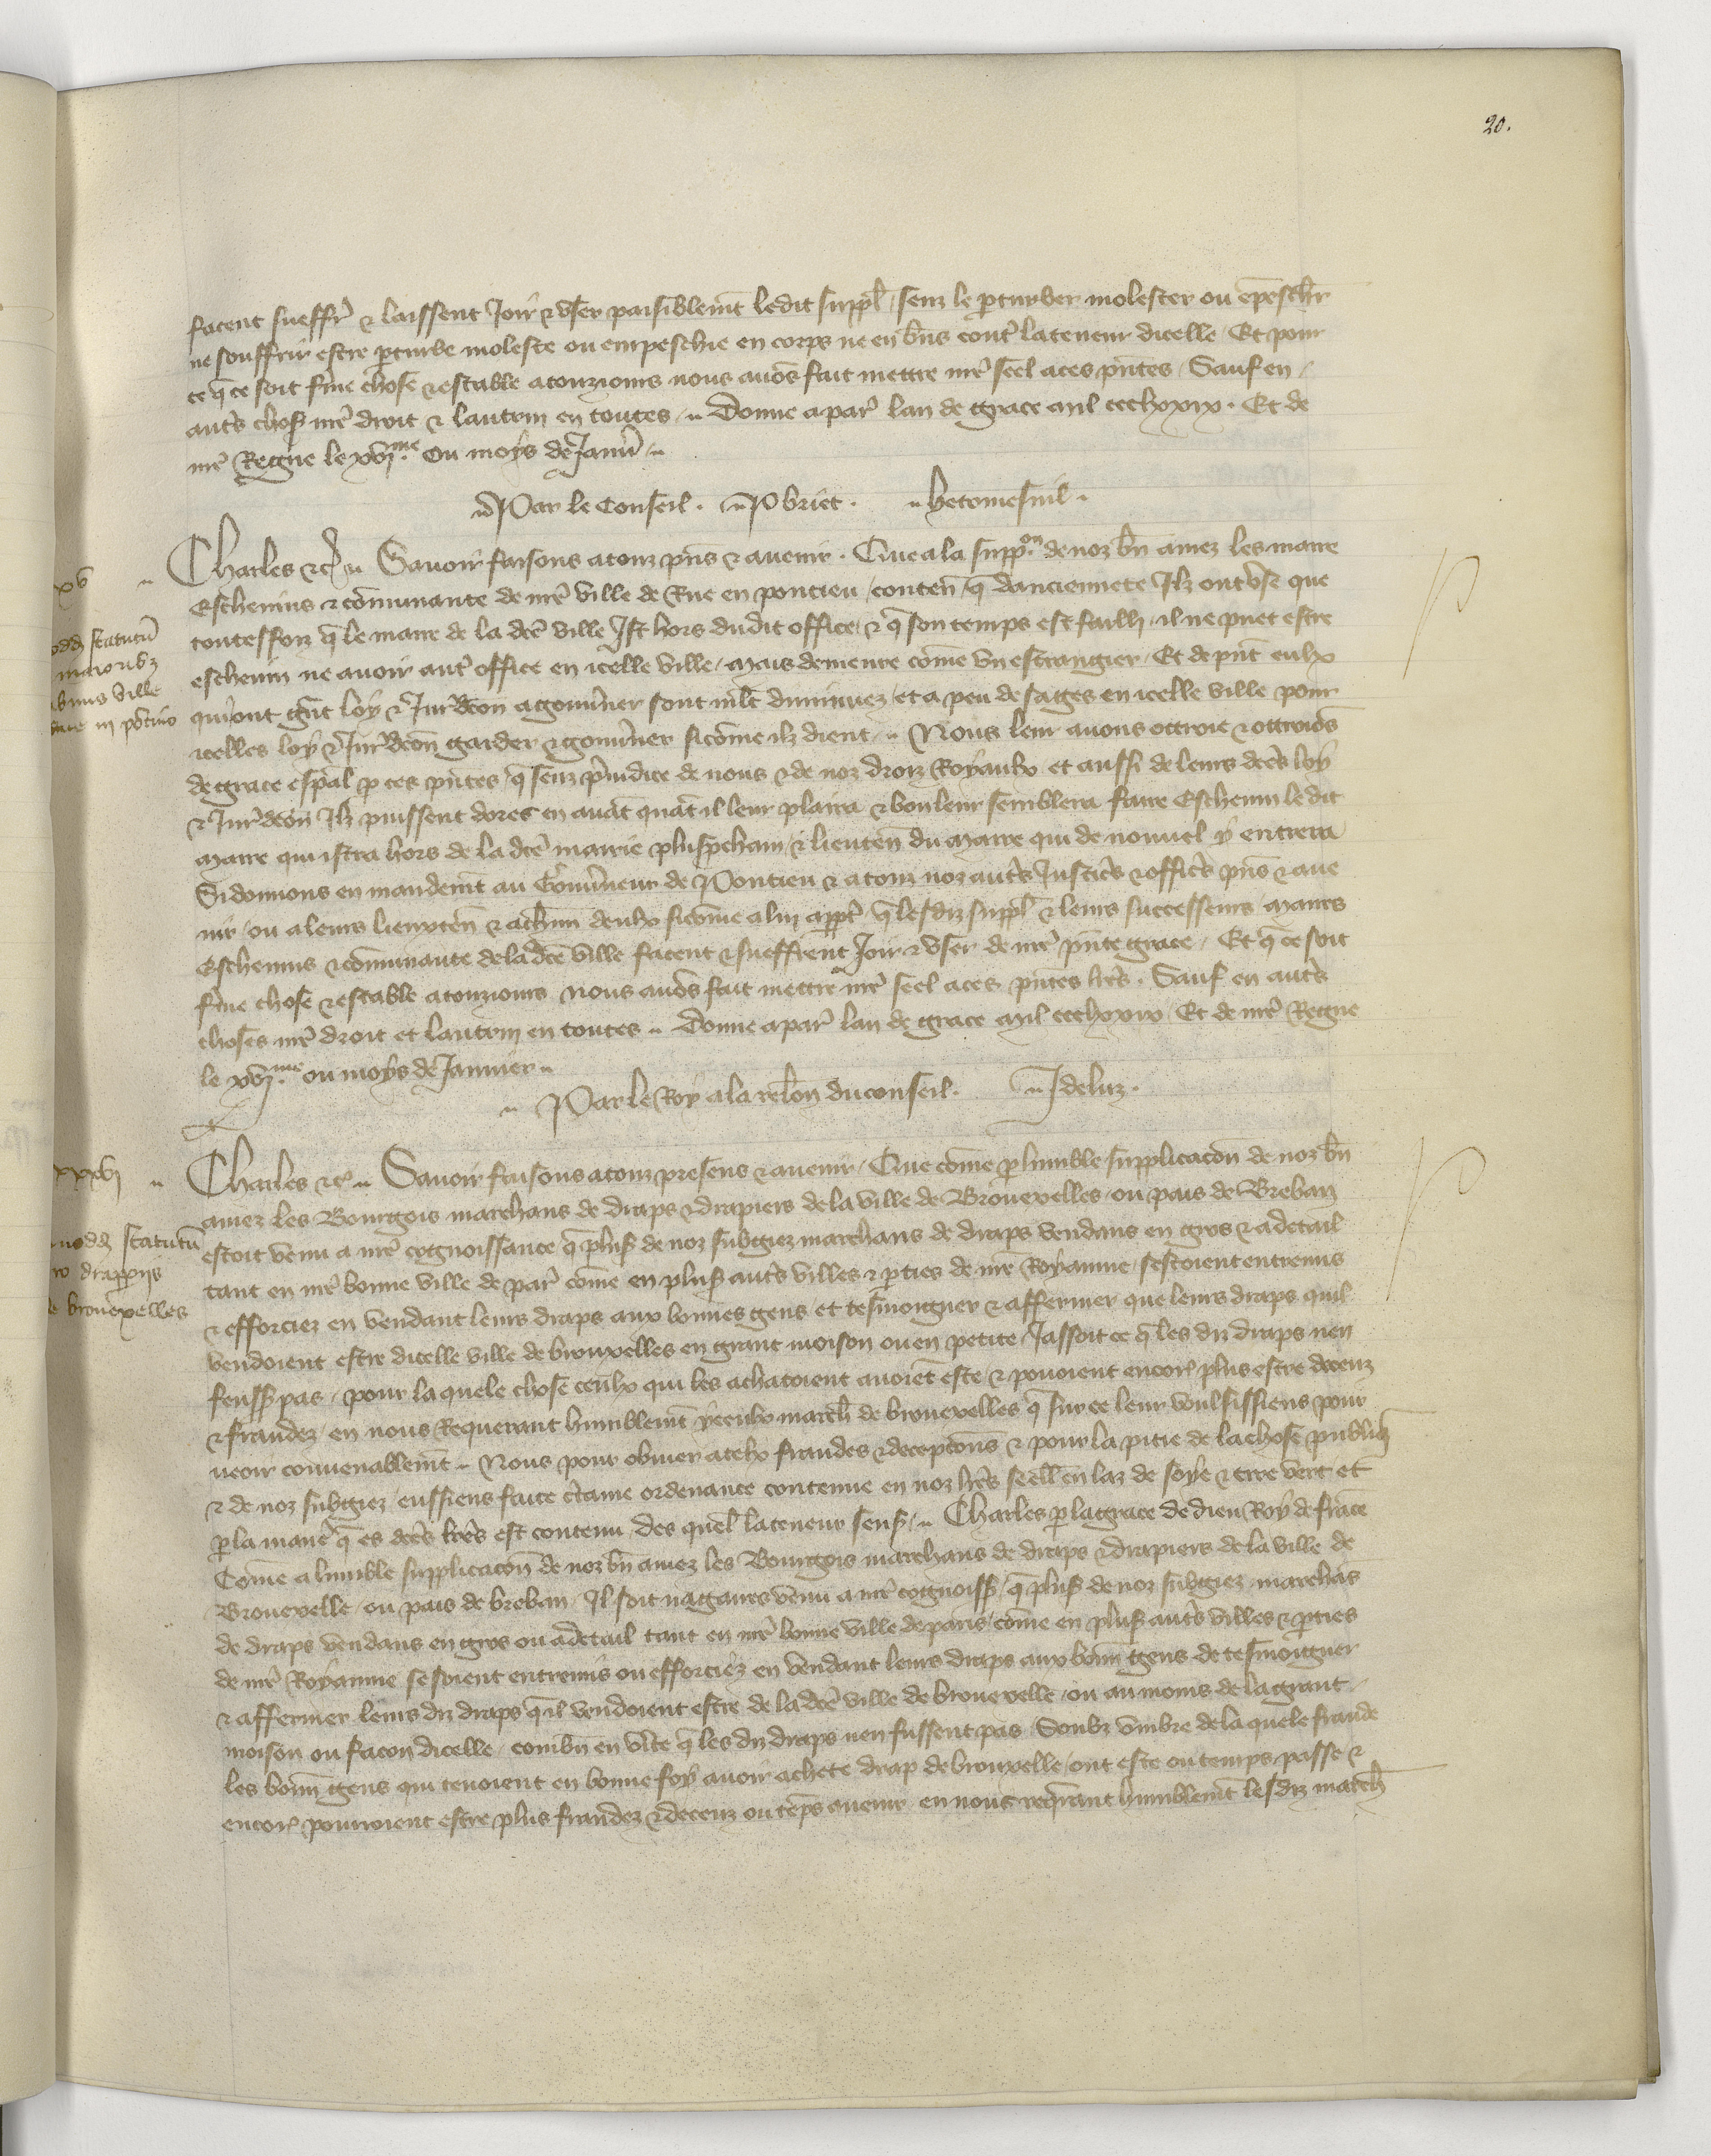 20.
facent sueffr̄ & laissent Joir & vser paisiblem̄t ledit suppl̄ / senz le ꝑturber molester ou empeschr̄
ne souffrir estre ꝑturbe moleste ou empeschie en corps ne en b̄ns cont̄ la teneur dicelle / Et pour
ce q̄ ce soit f̄me chose & estable a touzjours nous auōs fait mettre nr̄e seel a ces p̄ntes / Sauf en /
aut̄s chos̄ nr̄e droit & lautruy en toutes / Donne a par̄ lan de grace mil ccclxxix . Et de
nr̄e Regne le xvj.me Ou moys de Janu̅ /
Par le Conseil . P briet . hetomesnil .
Charles &c̄ Sauoir faisons a touz p̄ns & auenir . Que a la supp.on de noz b̄n amez les maire
Escheuins & cōmunaute de nr̄e ville de Rue en pontieu / conten̄ / q̄ danciennete Jlz ont vse que
toutesfoiz q̄ le maire de la dc̄e ville Jst hors dudit office / & q̄ son temps est failli / il ne puet estre
escheuin ne auoir aut̄ office en icelle ville / mais demeure cōme vn estrangier / Et de p̄nt eulx
qui ont gn̄t loy & Jur̄dcōn a gouu̅ner sont mlt̄ diminuez / et a peu de sages en icelle ville pour
icelles loy & Jur̄dcōn garder & gouu̅ner sicōme ilz dient / Nous leur auons ottroie & ottroiōs
de grace esp̄al ꝑ ces p̄ntes q̄ senz p̄iudice de nous & de noz droiz Royaulx et aussi de leurs dc̄es loy
& Jur̄dcōn Jlz puissent dores en auāt quāt il leur plaira & bon leur semblera faire Escheuin ledit
maire qui istra hors de la dc̄e mairie plus ꝓchain / & lieuten̄ du maire qui de nouuel y entrera
Si donnons en mandem̄t au Gouu̅neur de Pontieu & a touz noz aut̄s Justic̄s & offic̄s p̄ns & aue
nir / ou a leurs lieuxten̄ & a ch̄un deulx sicōme a luy app̄t / q̄ lesdiz suppl̄ & leurs successeurs maires
Escheuins & cōmunaute de la dc̄e ville facent & sueffrent Joir & vser de nr̄e p̄nte grace / Et q̄ ce soit
f̄me chose & estable a touzjours nous auōs fait mettre nr̄e seel a ces p̄ntes lr̄es . Sauf en aut̄s
choses nr̄e droit et lautruy en toutes Donne a par̄ lan de grace mil ccclxxix / Et de nr̄e Regne
le xvj.me ou moys de Januier
Par le Roy a la rel̄on du conseil . J de luz .
Charles &c̄ Sauoir faisons a touz presens & auenir / Que cōme ꝑ lumble supplicacōn de noz b̄n
amez les Bourgois marchans de draps & drapiers de la ville de Brouexelles / ou pais de Breban
estoit venu a nr̄e cognoissance q̄ plus̄ de noz subgiez marchans de draps vendans en gros & a detail
tant en nr̄e bonne ville de par̄ cōme en plus̄ aut̄s villes & ꝑties de nr̄e Royaume / sestoient entremis
& efforciez en vendant leurs draps aux bonnes gens / et tesmoigner & affermer que leurs draps quil
vendoient estre dicelle ville de brouxelles en grant moison ou en petite / Jassoit ce q̄ les diz draps nen
feuss̄ pas / pour laquele chose ceulx qui les achatoient auoiēt este & pouoient encor̄ plus estre deceuz
& fraudez / en nous Requerant humblem̄t yceulx march̄ de brouexelles q̄ sur ce leur voulsissiens pour
ueoir conuenablem̄t Nous pour obuier a telx fraudes & decepcōns & pour la pitie de la chose publiq̄
& de noz subgiez / eussiens faite c̄taine ordenance contenue en noz lr̄es seell̄ en laz de soye & cire vert et
ꝑ la manie̅ q̄ es dc̄es lr̄es est contenu / des quel̄ la teneur sensi / Charles ꝑ la grace de dieu Roy de france
Cōme a lumble supplicacōn de noz b̄n amez les Bourgois marchans de draps & drapiers de la ville de
Brouexelle / ou pais de breban / Jl soit nagaires venu a nr̄e cognoiss̄ / q̄ plus̄ de noz subgiez marchās
de draps vendans en gros ou a detail tant en nr̄e bonne ville de paris / cōme en plus̄ aut̄s villes & ꝑties
de nr̄e Royaume se soient entremis ou efforciez en vendant leurs draps aux bonn̄ gens de tesmoigner
& affermer leurs diz draps q̄l vendoient estre de la dc̄e ville de brouexelle / ou au moins de la grant /
moison ou facon dicelle / combn̄ en v̄ite q̄ les diz draps nen fussent pas / Soubz vmbre de la quele fraude
les bonn̄ gens qui tenoient en bonne foy auoir achete drap de brouxelle / ont este ou temps passe &
encor̄ pourroient estre plus fraudez & deceuz ou tēps auenir en nous req̄rant humblem̄t lesdiz march̄
xv
statutū
maioribz
ville
in pōtiuo
xxxvj
statutū
drappijs
brouexelles